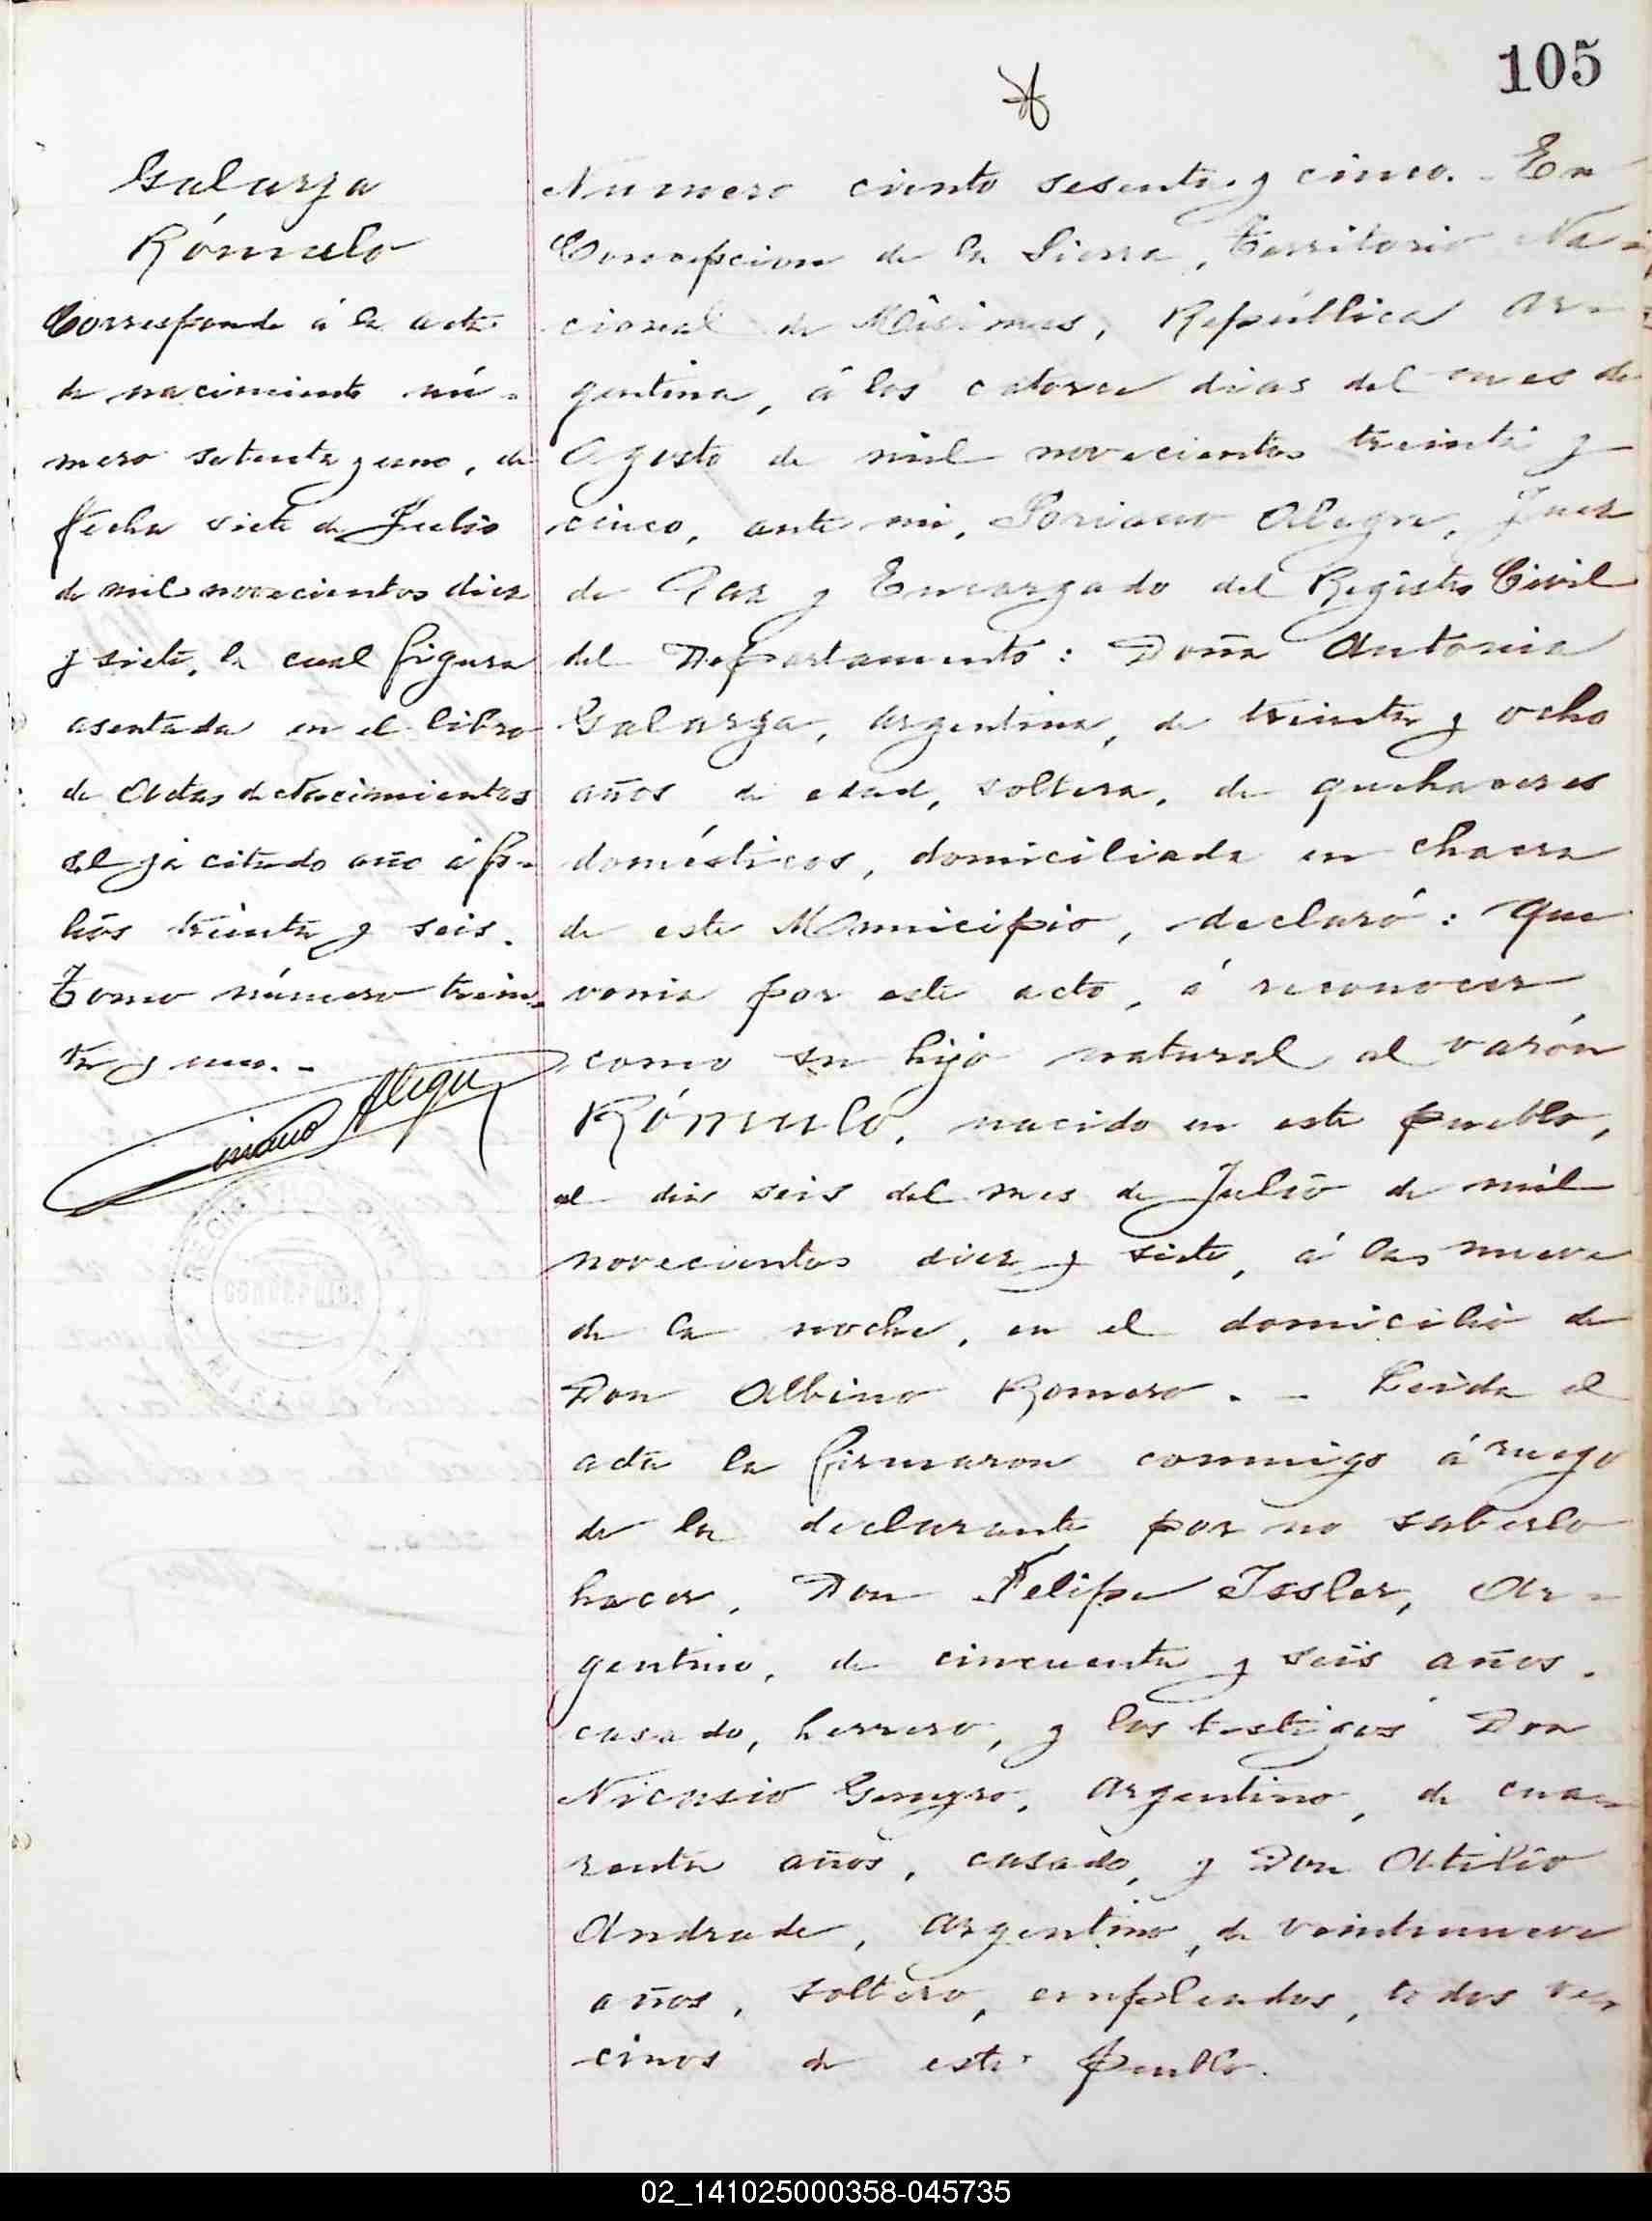 105
Galarza
Rómulo
Corresponde á la acta
de nacimiento nú-
mero setenta y uno, de
fecha siete de Julio
de mil novecientos diez
y siete, la cual figura
asentada en el libro
de Actas de Nacimientos
del ya citado año á fo-
lios treinta y seis.
Tomo número trein-
ta y uno.-
Soriano Alegre
REGISTRO CIVIL
Número ciento sesenta y cinco.- En
Concepcion de la Sierra, Territorio Na-
cional de Misiones, República Ar-
gentina, á los catorce dias del mes de
Agosto de mil novecientos treinta y
cinco, ante mi, Soriano Alegre, Juez
de Paz y Encargado del Registro Civil
del Departamento: Doña Antonia
Galarza, argentina, de treinta y ocho
años de edad, soltera, de quehaceres
domésticos, domiciliada en chacra
de este Municipio, declaró: Que
venia por este acto, á reconocer
como su hijo natural al varón
RÓMULO, nacido en este pueblo,
el dia seis del mes de Julio de mil
novecientos diez y siete, á las nueve
de la noche, en el domicilio de
Don Albino Romero.- Leida el
acta la firmaron conmigo á ruego
de la declarante por no saberlo
hacer, Don Felipe Issler, Ar-
gentino, de cincuenta y seis años,
casado, herrero, y los testigos Don
Nicasio, Argentino, de cua-
renta años, casado, y Don Atilio
Andrade, Argentino, de veintinueve
años, soltero, empleados, todos ve-
cinos de este pueblo.
02_141025000358-045735